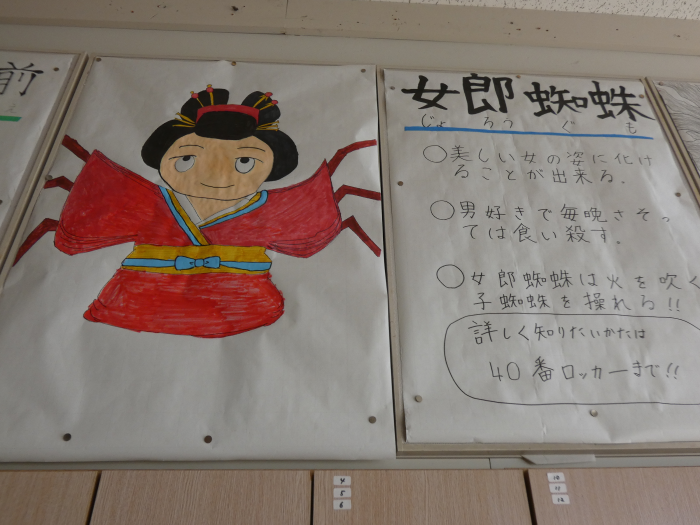 前
え
女郎蜘蛛
じょ ろう ぐ も
○美しい女の姿に化け
ることが出来る.
○男好きで毎晩さそっ
ては食い殺す.
○女郎蜘蛛は火を吹く
子蜘蛛を操れる!!
詳しく知りたいかたは
40番ロッカーまで!!
4
5
6
10
11
12